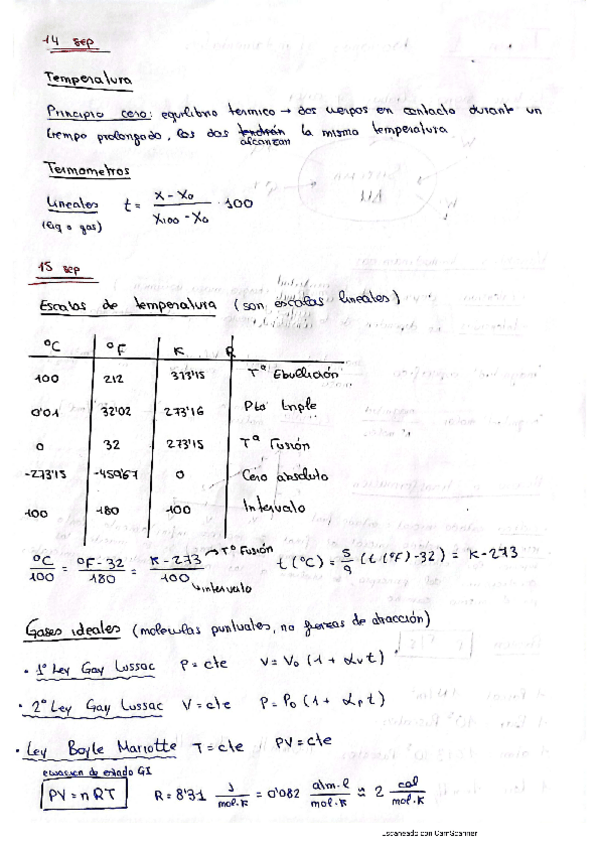 14 sep
Temperatura
Principio cero: equilibrio termico → dos cuerpos en contacto durante un
tiempo prolongado, los dos tendrán la misma temperatura
alcanzan
Termometros
Lineales t = (X - X0) / (X100 - X0) · 100
(liq o gas)
15 sep
Escalas de temperatura (son escalas lineales)
ºC ºF K R
100 212 373'15 Tª Ebullición
0'01 32'02 273'16 Pto triple
0 32 273'15 Tª Fusión
-273'15 -459'67 0 Cero absoluto
100 180 100 Intervalo
ºC/100 = (ºF - 32)/180 = (K - 273)/100 → Tº Fusión t (ºC) = 5/9 (t (ºF) - 32) = K - 273
↳ intervalo
Gases ideales (moleculas puntuales, no fuerzas de atracción)
· 1º Ley Gay Lussac P = cte V = V0 (1 + αv t)
· 2º Ley Gay Lussac V = cte P = P0 (1 + αp t)
· Ley Boyle Mariotte T = cte PV = cte
ecuacion de estado GI
PV = n RT R = 8'31 J/mol·K = 0'082 atm·l/mol·K ≈ 2 cal/mol·K
Escaneado con CamScanner